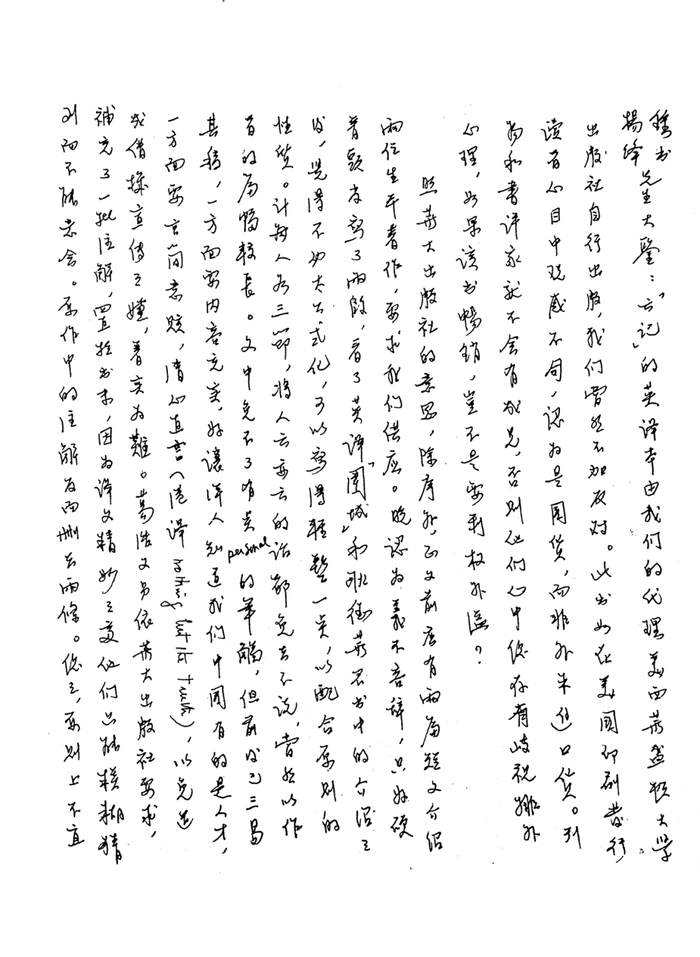 锺书
杨绛 先生大鉴：云「记」的英译本由我们的代理美西华盛顿大学
出版社自行出版，我们当然不加反对。此书如在美国印刷发行，
读者心目中观感不同，认为是国货，而非外来进口货。刊
物和书评家就不会有成见，否则他们心中总存有歧视排外
心理，如果该书畅销，岂不是要利权外溢？
照华大出版社的意思，除序外，正文前应有两篇短文介绍
两位生平著作，要求我们供应。晚认为义不容辞，只好硬
着头皮写了两段，看了英译「围城」和耿德华君书中的介绍之
后，觉得不妨大公式化，可以写得轻松一点，以配合原刊的
性质。计每人各三节，将人云亦云的话都免去不说，当然以作
者的篇幅较长。文中免不了有点personal的笔触，但前后已三易
其稿，一方面要内容充实，好让洋人知道我们中国有的是人才，
一方面要言简意赅，清心直言（港译 nothing but the truth），以免造
成借机宣传之嫌，着实为难。葛浩文另依华大出版社要求，
补充了一批注解，置于书末，因为译文精妙之处他们只能模糊猜
到而不能意会。原作中的注解反而删去两条。总之，原则上不宜